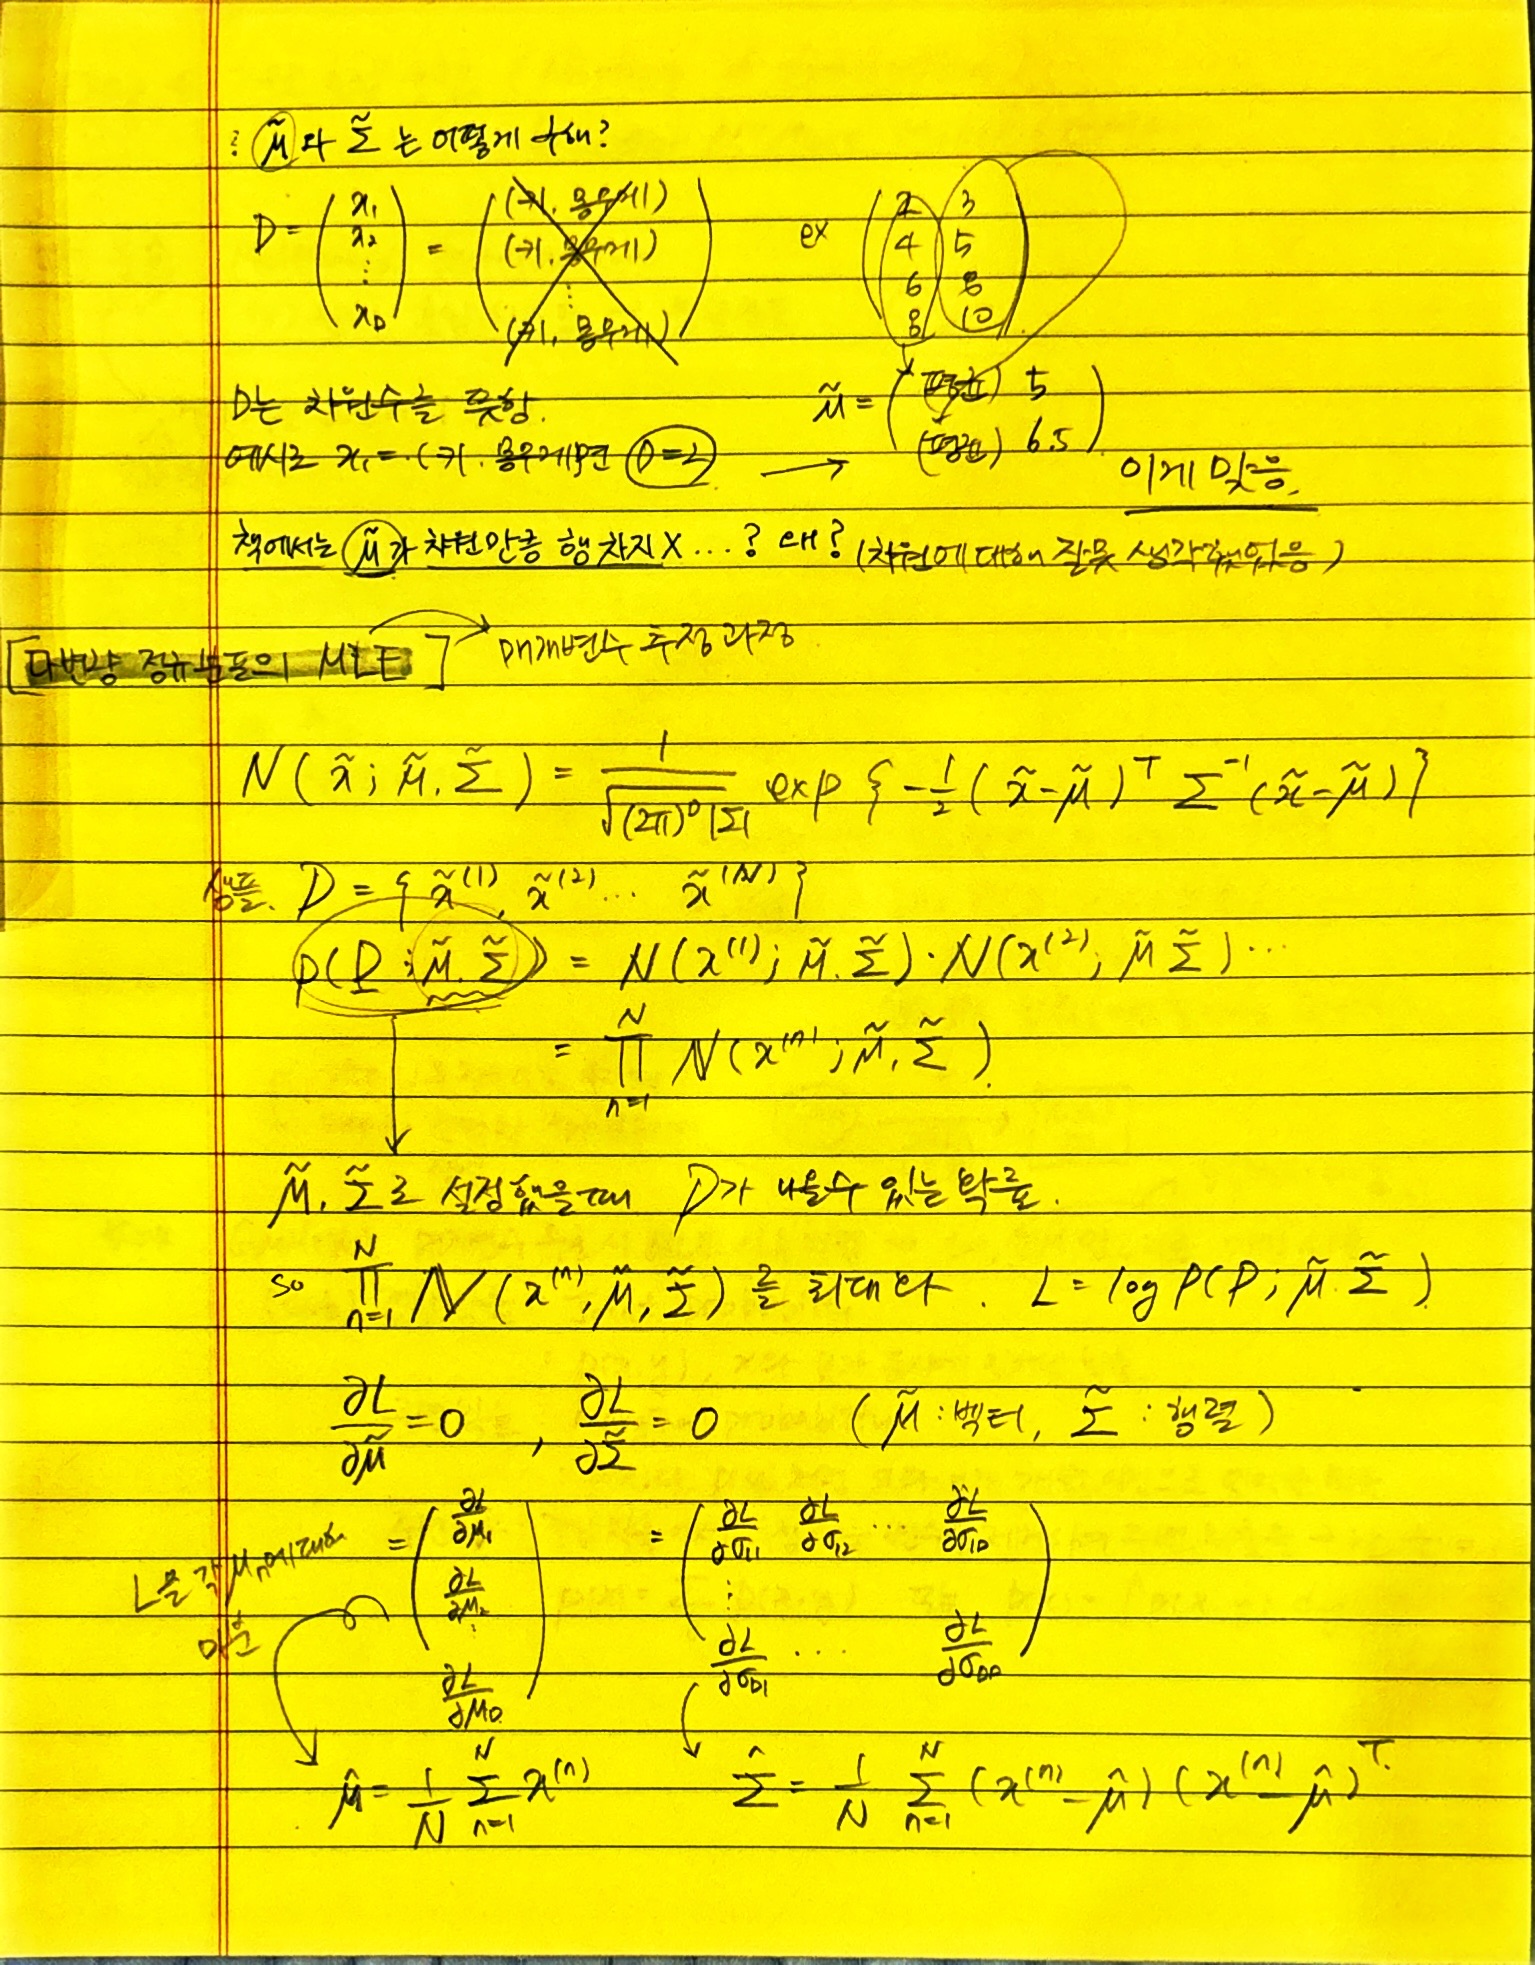 : μ̃ 와 Σ̃ 는 어떻게 구해?
D = ( x₁ x₂ ⋮ x_D ) = ( (키, 몸무게) (키, 몸무게) ⋮ (키, 몸무게) ) ex ( 2 3 4 5 6 8 8 10 )
D는 차원수를 뜻함. μ̃ = ( (평균) 5 (평균) 6.5 )
예시로 x₁ = (키, 몸무게)면 D=2 → 이게 맞음.
책에서는 μ̃가 차원만큼 행 차지 X ...? 왜? (차원에 대해 잘못 생각했었음)
[다변량 정규분포의 MLE] → 매개변수 추정 과정
N(x̃; μ̃, Σ̃) = 1/√((2π)ᴰ|Σ|) exp{ -1/2 (x̃-μ̃)ᵀ Σ⁻¹ (x̃-μ̃) }
샘플. D = { x̃⁽¹⁾, x̃⁽²⁾ ... x̃⁽ᴺ⁾ }
p(D; μ̃, Σ̃) = N(x⁽¹⁾; μ̃, Σ̃) · N(x⁽²⁾; μ̃ Σ̃) ...
= ∏ₙ₌₁ᴺ N(x⁽ⁿ⁾; μ̃, Σ̃)
μ̃, Σ̃로 설정했을때 D가 나올수 있는 확률.
so ∏ₙ₌₁ᴺ N(x⁽ⁿ⁾; μ̃, Σ̃) 를 최대화. L = log P(D; μ̃ Σ̃)
∂L/∂μ̃ = 0, ∂L/∂Σ̃ = 0 (μ̃ : 벡터, Σ̃ : 행렬)
L을 각 μₙ에 대해 미분 = ( ∂L/∂μ₁ ∂L/∂μ₂ ⋮ ∂L/∂μ_D ) = ( ∂L/∂σ₁₁ ∂L/∂σ₁₂ ... ∂L/∂σ₁D ⋮ ∂L/∂σ_D1 ... ∂L/∂σ_DD )
μ̂ = 1/N Σₙ₌₁ᴺ x⁽ⁿ⁾ Σ̂ = 1/N Σₙ₌₁ᴺ (x⁽ⁿ⁾ - μ̂)(x⁽ⁿ⁾ - μ̂)ᵀ.